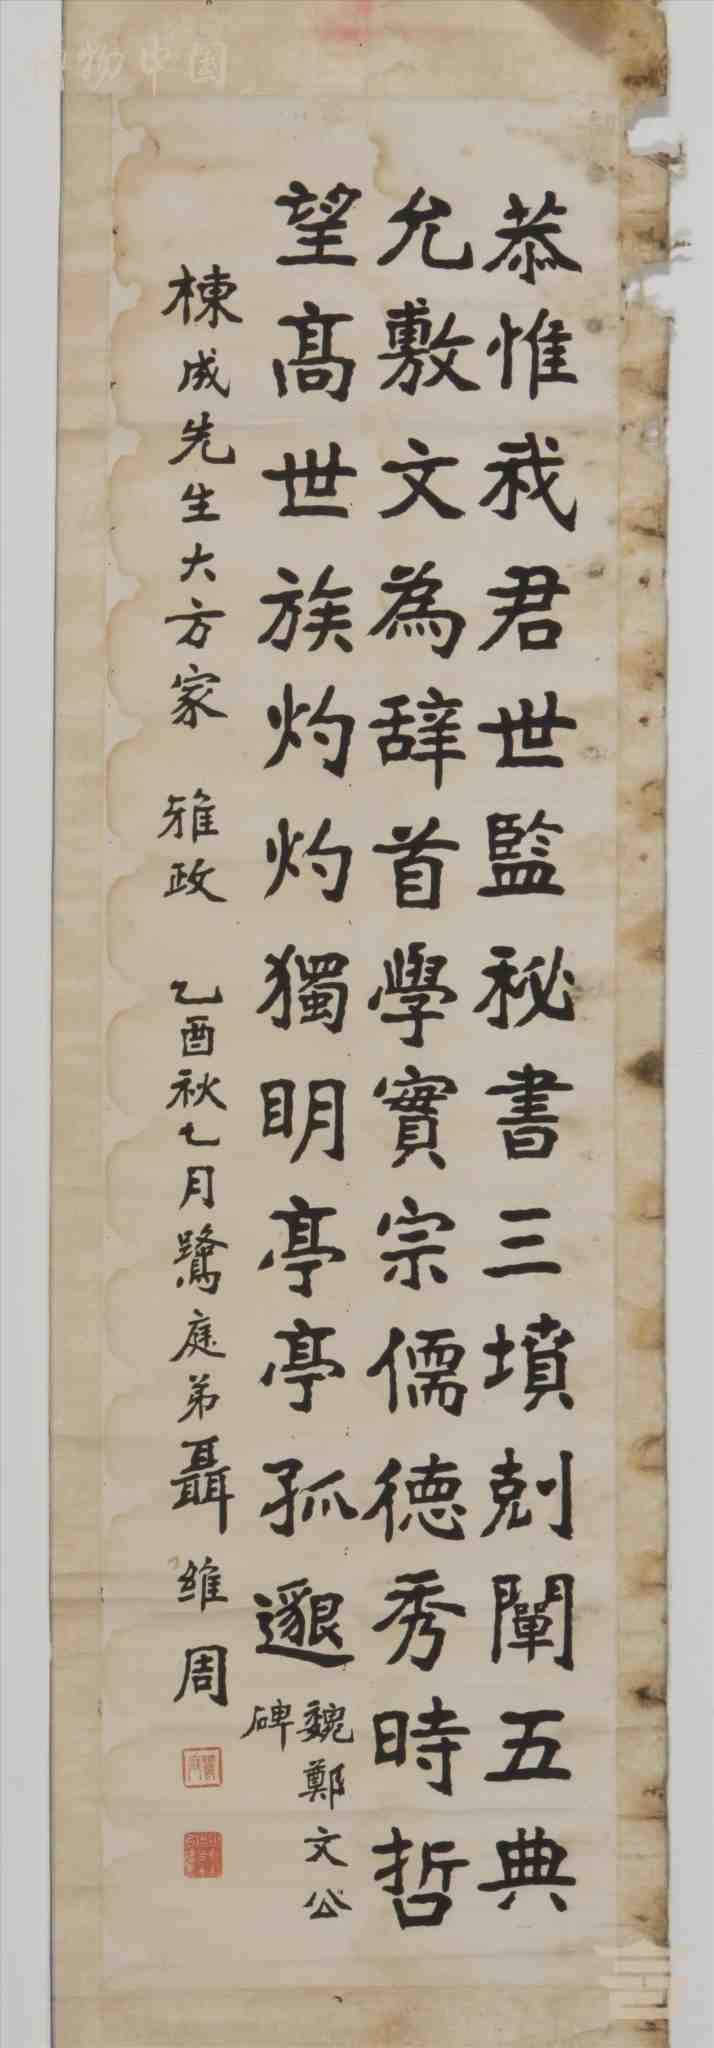 恭惟我君世監秘書三墳剋闡五典
允敷文為辞首學實宗儒德秀時哲
望髙世族灼灼獨明亭亭孤邈
魏鄭文公
碑
棟成先生大方家 雅政 乙酉秋七月鷺庭弟聶維周
物中国